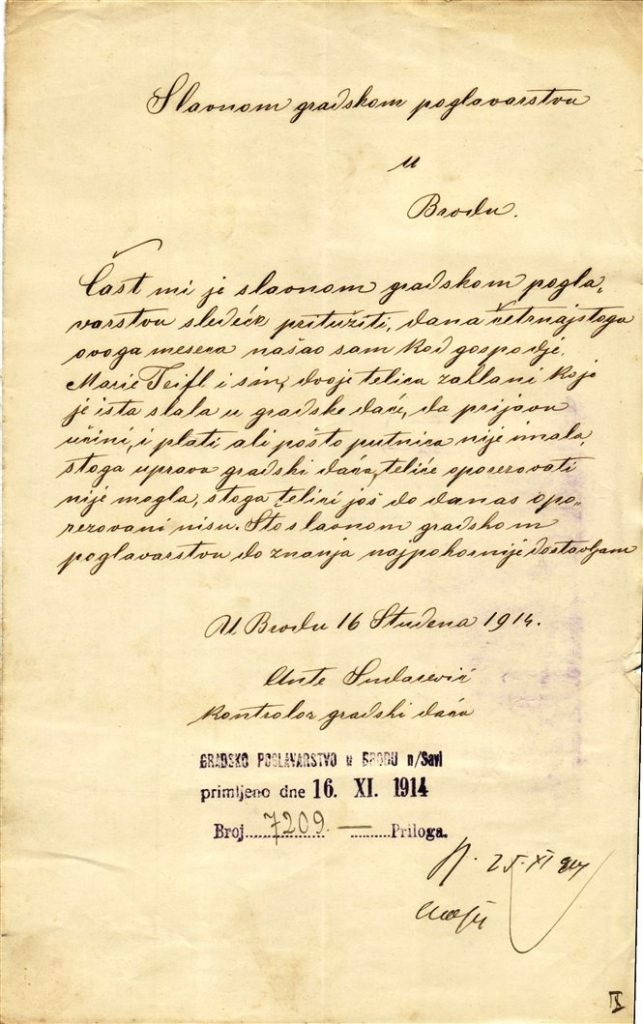 Slavnom gradskom poglavarstvu
u
Brodu.
Čast mi je slavnom gradskom pogla-
varstvu sledeće pritužiti, dana četrnajstoga
ovoga meseca našao sam kod gospodje,
Marie Teifl i sin, dvoje telica zaklani koje
je ista slala u gradske daće, da prijavu
učini, i plati ali pošto putnica nije imala,
stoga uprava gradski daća, teliće oporezovati
nije mogla, stoga telići još do danas opo-
rezovani nisu. Što slavnom gradskom
poglavarstvu do znanja najpokornije dostavljam
U Brodu 16 Studena 1914.
Ante
kontrolor gradski daća
GRADSKO POGLAVARSTVO u BRODU n/Savi
primljeno dne 16. XI. 1914
Broj 7209 — Priloga.
25. XI 914
IX